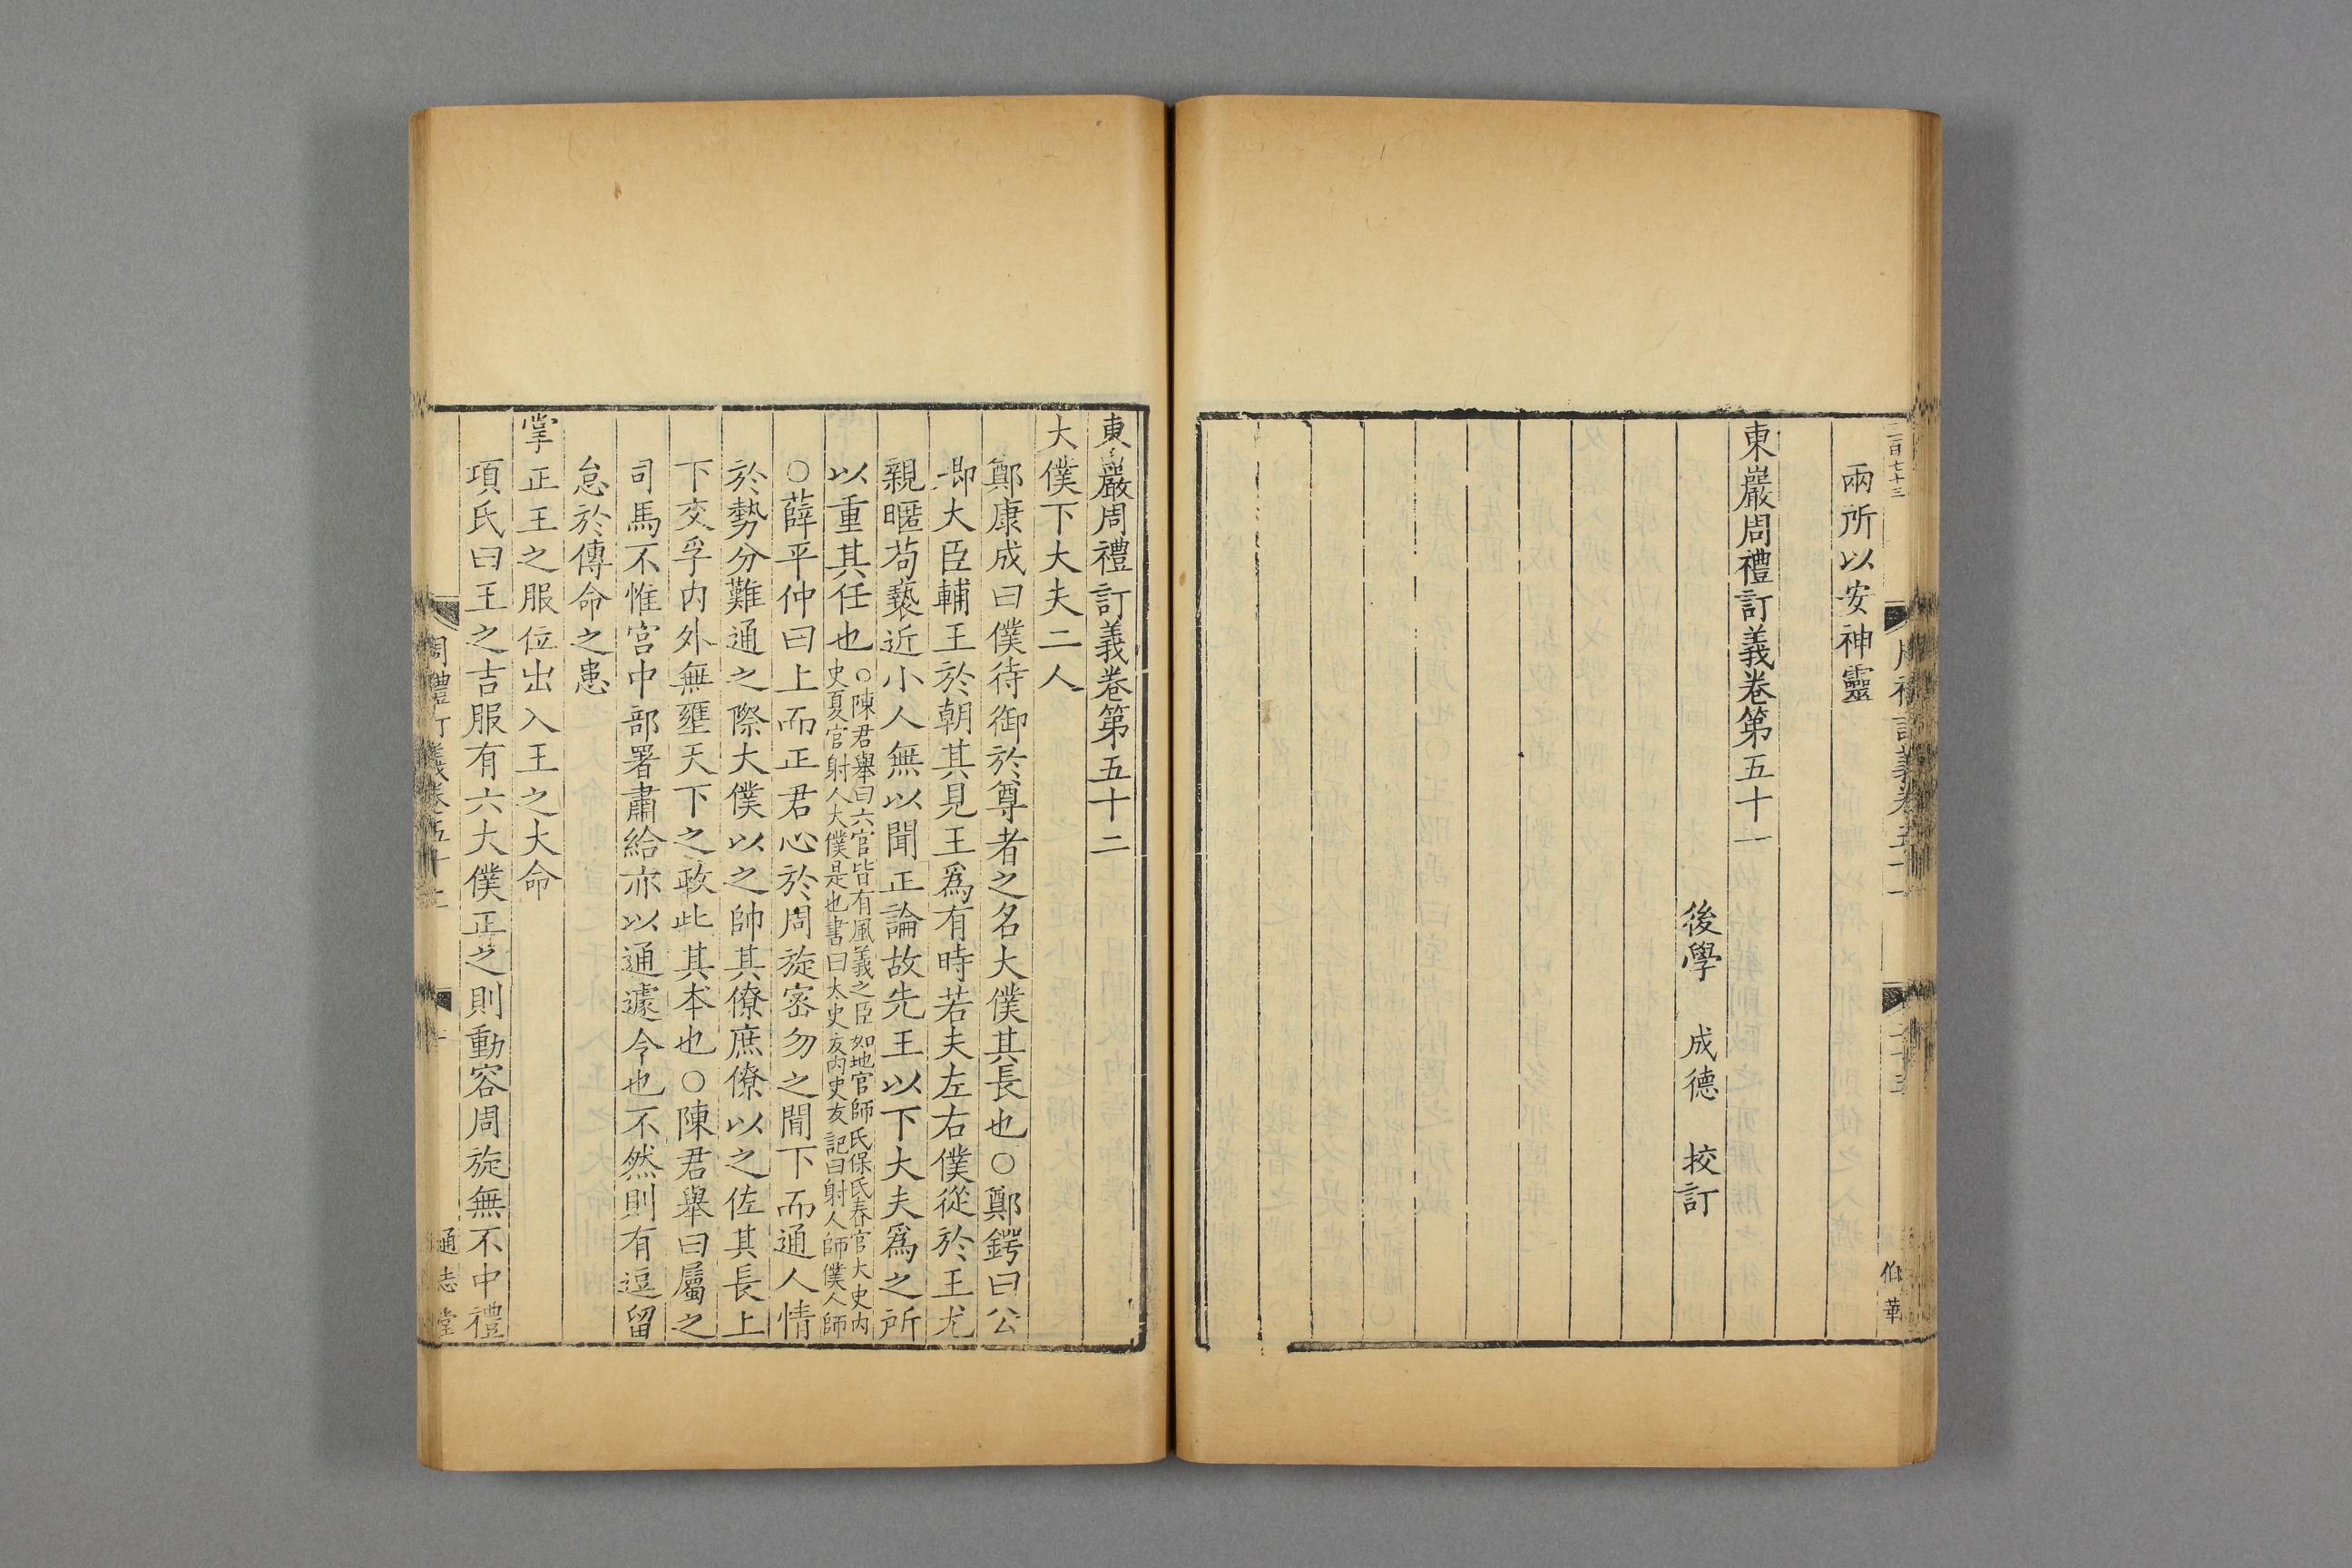 二百七十三
兩所以安神靈
東巖周禮訂義卷第五十一
後學　成德　校訂
伯華
東巖周禮訂義卷第五十二
大僕下大夫二人
鄭康成曰僕待御於尊者之名大僕其長也○鄭鍔曰公
卿大臣輔王於朝其見王爲有時若夫左右僕從於王尤
親暱苟褻近小人無以聞正論故先王以下大夫爲之所
以重其任也○陳君舉曰六官皆有風義之臣如地官師氏保氏春官大史內
史夏官射人大僕是也書曰太史友內史友記曰射人師僕人師
○薛平仲曰上而正君心於周旋宻勿之閒下而通人情
於勢分難通之際大僕以之帥其僚庶僚以之佐其長上
下交孚内外無壅天下之政此其本也○陳君舉曰屬之
司馬不惟宮中部署肅給亦以通遽令也不然則有逗留
怠於傳命之患
掌正王之服位出入王之大命
項氏曰王之吉服有六大僕正之則動容周旋無不中禮
周禮訂義卷五十二
通志堂